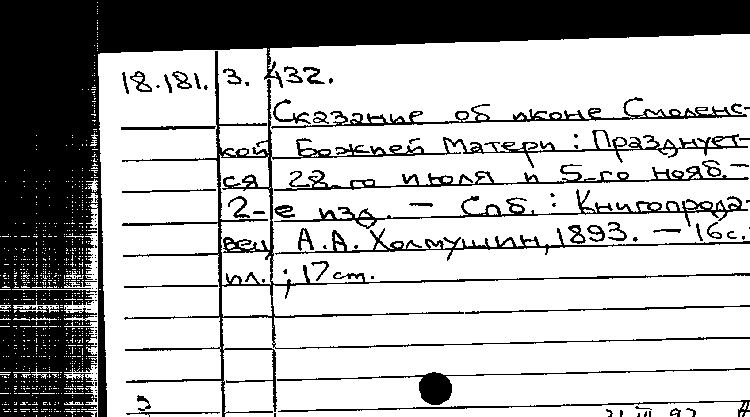 18.181. 3. 432.
Сказание об иконе Смоленс-
кой Божией Матери : Празднует-
ся 28-го июля и 5-го нояб. -
2-е изд. - Спб. : Книгопрода-
вец А.А. Холмушин, 1893. - 16с.
ил. ; 17см.